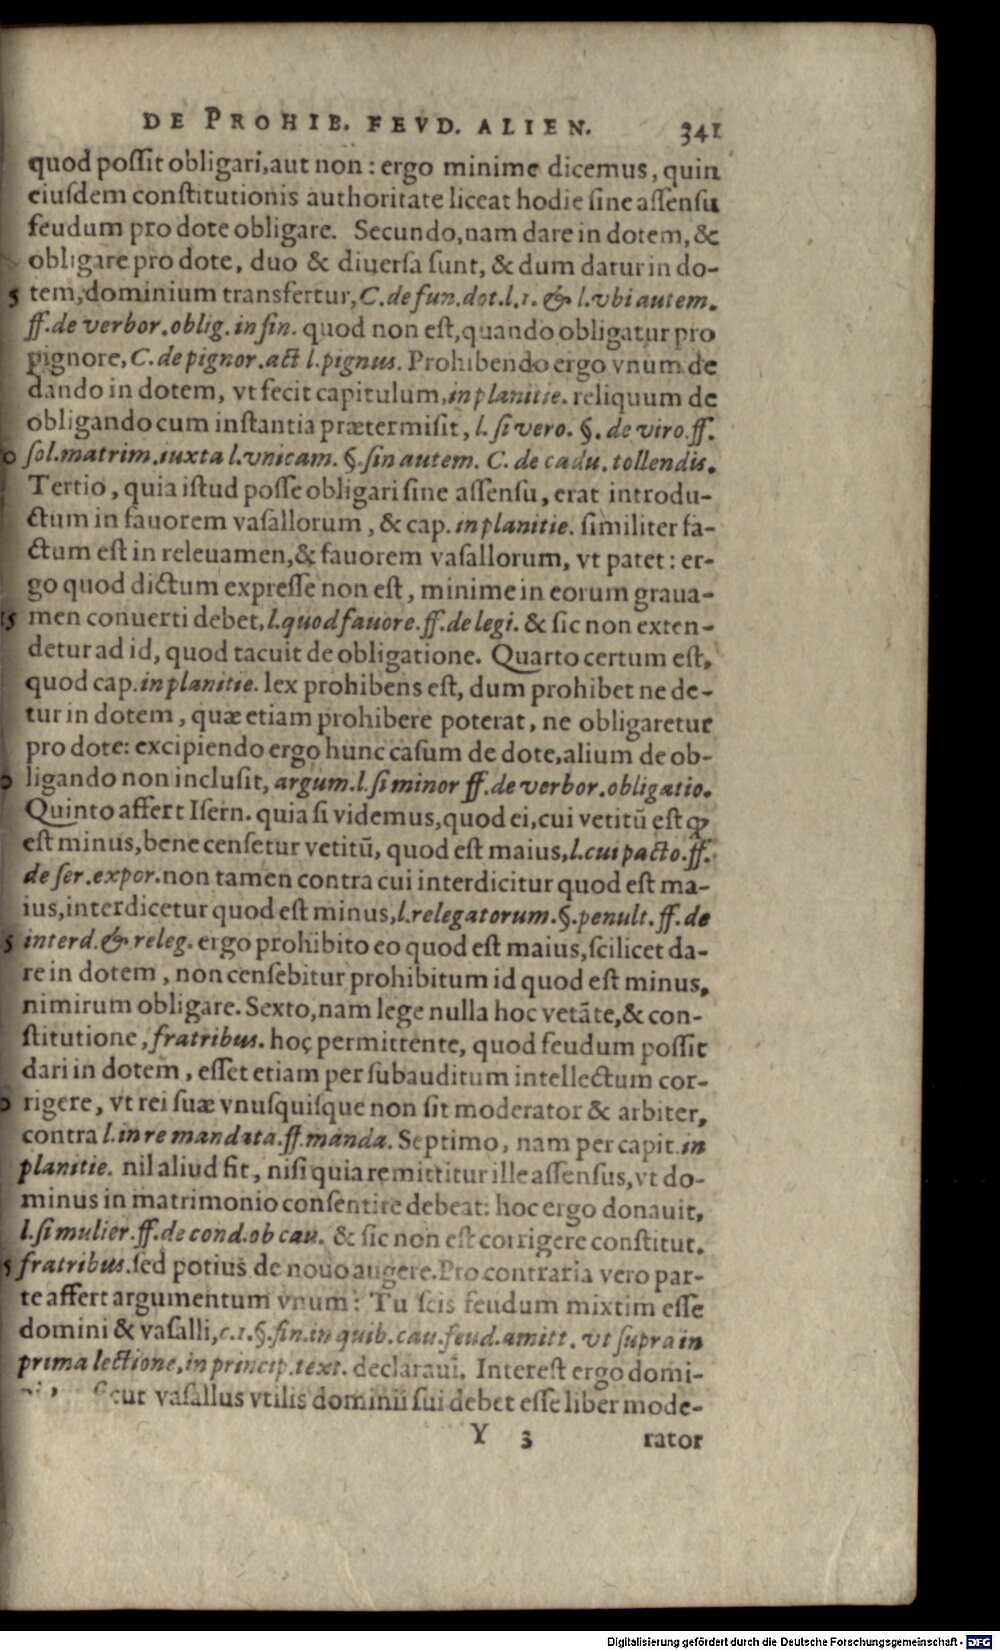 DE PROHIB. FEVD. ALIEN. 341
quod possit obligari, aut non: ergo minime dicemus, quin
eiusdem constitutionis authoritate liceat hodie sine assensu
feudum pro dote obligare. Secundo, nam dare in dotem, &
obligare pro dote, duo & diuersa sunt, & dum datur in do-
5 tem, dominium transfertur, C. de fun. dot. l. 1. & l. vbi autem.
ff. de verbor. oblig. in fin. quod non est, quando obligatur pro
pignore, C. de pignor. act l. pignus. Prohibendo ergo vnum de
dando in dotem, vt fecit capitulum, in planitie. reliquum de
obligando cum instantia prætermisit, l. si vero. §. de viro. ff.
0 sol. matrim. iuxta l. vnicam. §. sin autem. C. de cadu. tollendis.
Tertio, quia istud posse obligari sine assensu, erat introdu-
ctum in fauorem vasallorum, & cap. in planitie. similiter fa-
ctum est in releuamen, & fauorem vasallorum, vt patet: er-
go quod dictum expresse non est, minime in eorum graua-
15 men conuerti debet, l. quod fauore. ff. de legi. & sic non exten-
detur ad id, quod tacuit de obligatione. Quarto certum est,
quod cap. in planitie. lex prohibens est, dum prohibet ne de-
tur in dotem, quæ etiam prohibere poterat, ne obligaretur
pro dote: excipiendo ergo hunc casum de dote, alium de ob-
0 ligando non inclusit, argum. l. si minor ff. de verbor. obligatio.
Quinto affert Isern. quia si videmus, quod ei, cui vetitũ est ꝙ
est minus, bene censetur vetitũ, quod est maius, l. cui pacto. ff.
de ser. expor. non tamen contra cui interdicitur quod est ma-
ius, interdicetur quod est minus, l. relegatorum. §. penult. ff. de
5 interd. & releg. ergo prohibito eo quod est maius, scilicet da-
re in dotem, non censebitur prohibitum id quod est minus,
nimirum obligare. Sexto, nam lege nulla hoc vetãte, & con-
stitutione, fratribus. hoç permittente, quod feudum possit
dari in dotem, esset etiam per subauditum intellectum cor-
0 rigere, vt rei suæ vnusquisque non sit moderator & arbiter,
contra l. in re mandata. ff. manda. Septimo, nam per capit. in
planitie. nil aliud fit, nisi quia remittitur ille assensus, vt do-
minus in matrimonio consentire debeat: hoc ergo donauit,
l. si mulier. ff. de cond. ob cau. & sic non est corrigere constitut.
5 fratribus. sed potius de nouo augere. Pro contraria vero par-
te affert argumentum vnum: Tu scis feudum mixtim esse
domini & vasalli, c. 1. §. fin. in quib. cau. feud. amitt. vt supra in
prima lectione, in princip. text. declaraui. Interest ergo domi-
ni, sicut vasallus vtilis dominii sui debet esse liber mode-
Y 3 rator
Digitalisierung gefördert durch die Deutsche Forschungsgemeinschaft - DFG